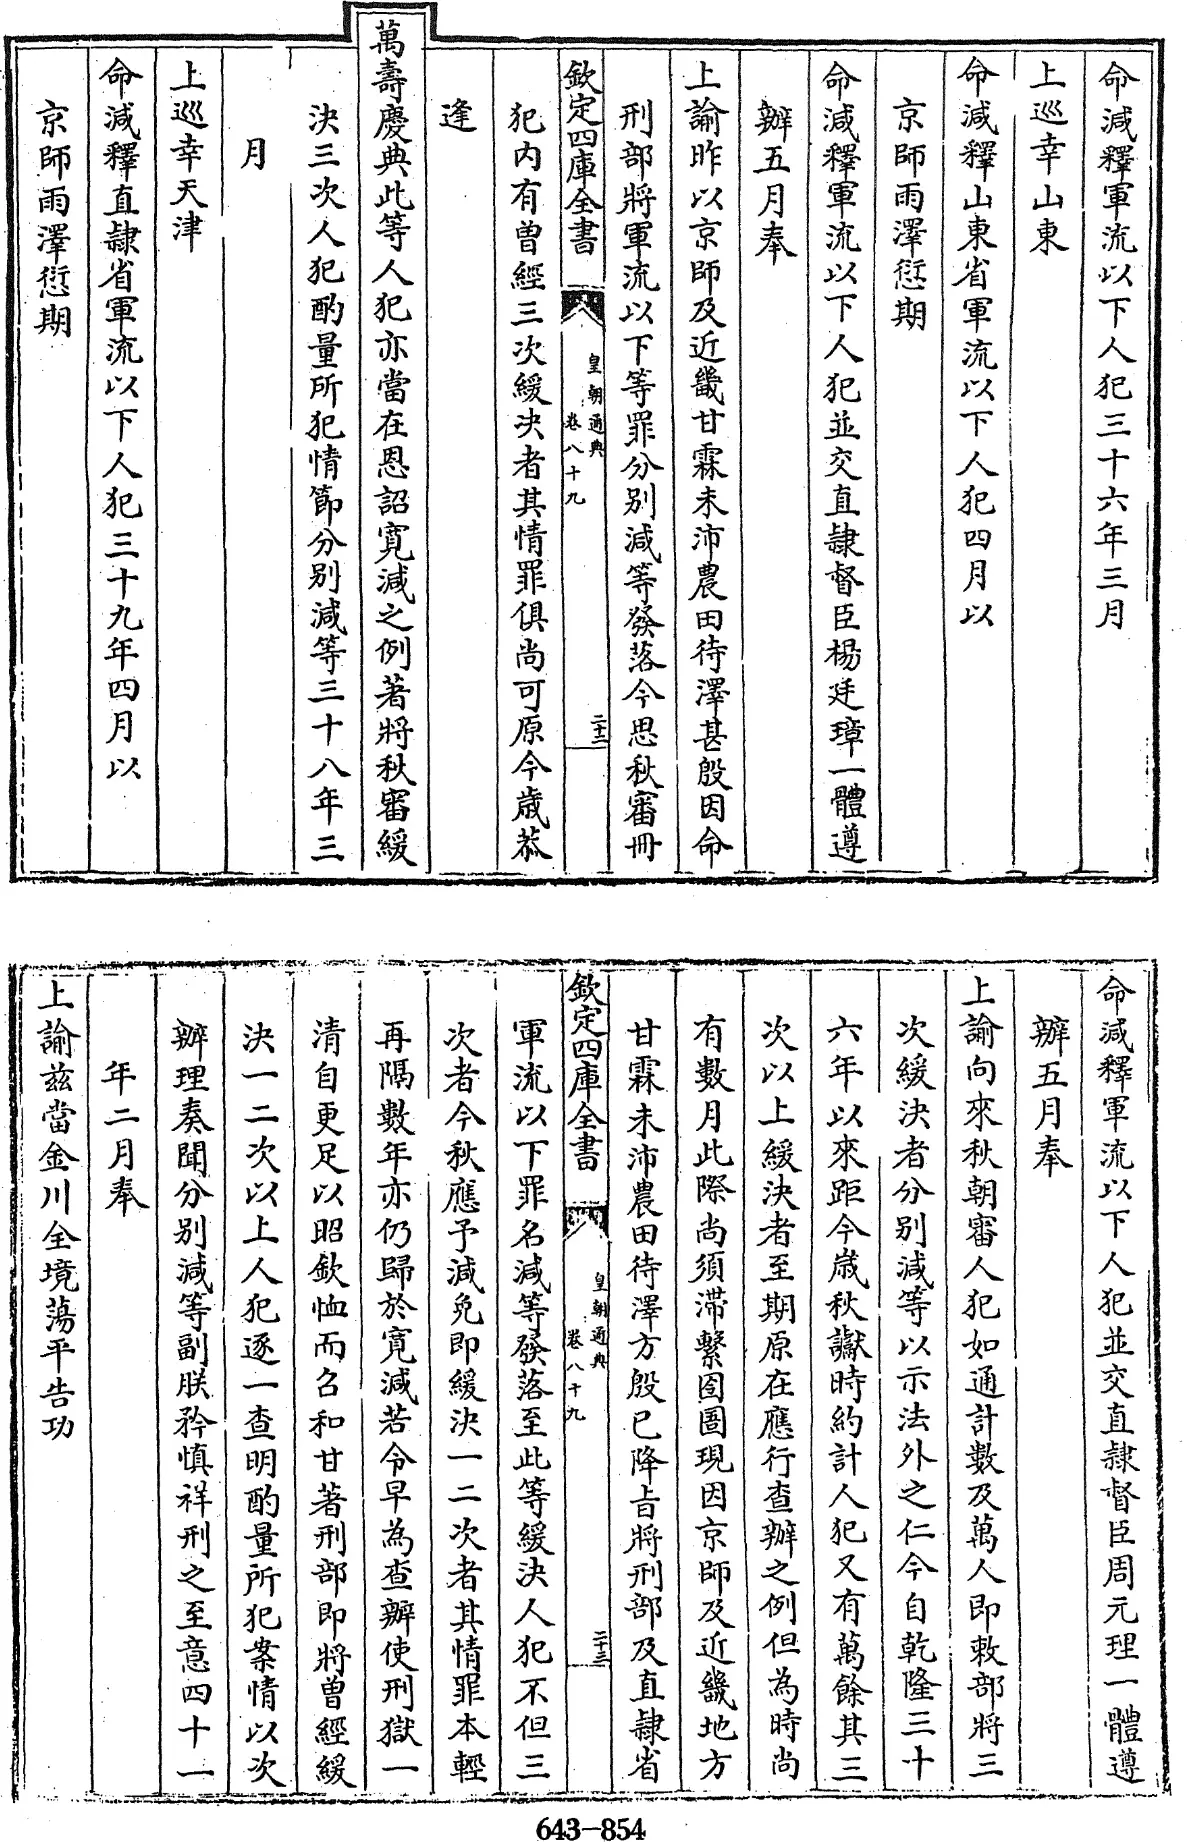 命減釋軍流以下人犯三十六年三月
上巡幸山東
命減釋山東省軍流以下人犯四月以
京師雨澤愆期
命減釋軍流以下人犯並交直隸督臣楊廷璋一體遵
辦五月奉
上諭昨以京師及近畿甘霖未沛農田待澤甚殷因命
刑部將軍流以下等罪分別減等發落今思秋審冊
欽定四庫全書
皇朝通典
卷八十九
二十二
犯内有曾經三次緩决者其情罪俱尚可原今歲恭
逢
萬壽慶典此等人犯亦當在恩詔寛減之例著將秋審緩
決三次人犯酌量所犯情節分别減等三十八年三
月
上巡幸天津
命減釋直隷省軍流以下人犯三十九年四月以
京師雨澤愆期
命減釋軍流以下人犯並交直隸督臣周元理一體遵
辦五月奉
上諭向來秋朝審人犯如通計數及萬人即敕部將三
次緩決者分别減等以示法外之仁今自乾隆三十
六年以來距今歲秋讞時約計人犯又有萬餘其三
次以上緩決者至期原在應行查辦之例但為時尚
有數月此際尚須滯繫囹圄現因京師及近畿地方
甘霖未沛農田待澤方殷已降旨將刑部及直隸省
欽定四庫全書
皇朝通典
卷八十九
二十三
軍流以下罪名減等發落至此等緩決人犯不但三
次者今秋應予減免即緩決一二次者其情罪本輕
再隔數年亦仍歸於寛減若令早為查辦使刑獄一
清自更足以昭欽恤而召和甘著刑部即將曾經緩
決一二次以上人犯逐一查明酌量所犯案情以次
辦理奏聞分别減等副朕矜慎祥刑之至意四十一
年二月奉
上諭兹當金川全境蕩平告功
643-854